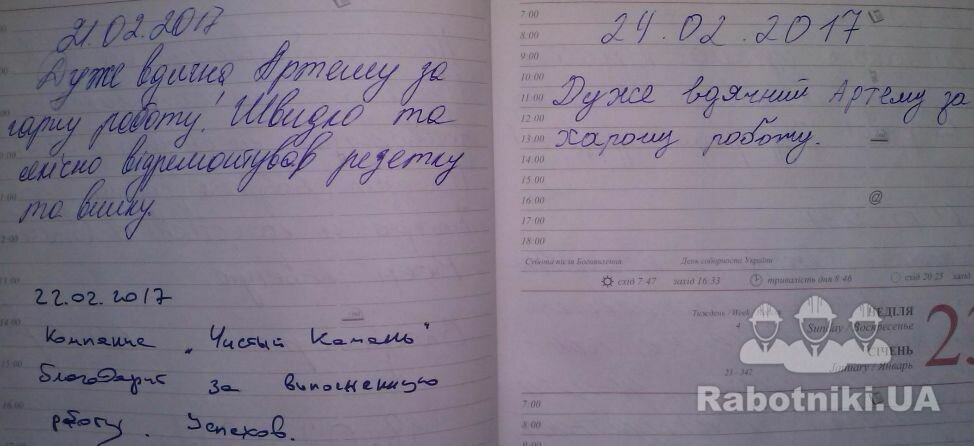 21.02.2017
Дуже вдячна Артему за
гарну роботу! Швидко та
якісно відремонтував розетку
та вилку.
22.02.2017
Компания "Чистый Камень"
благодарит за выполненную
работу. Успехов.
7:00
8:00
9:00
10:00
11:00
12:00
13:00
14:00
15:00
16:00
17:00
18:00
24.02.2017
Дуже вдячний Артему за
харошу роботу.
@
Субота після Богоявлення День соборності України
схід 7:47 захід 16:33 тривалість дня 8:46 схід 20:25 захід
Тиждень / Week /
4
НЕДІЛЯ
Sunday / Воскресенье
СІЧЕНЬ
January / Январь
23 - 342
7:00
8:00
Rabotniki.UA